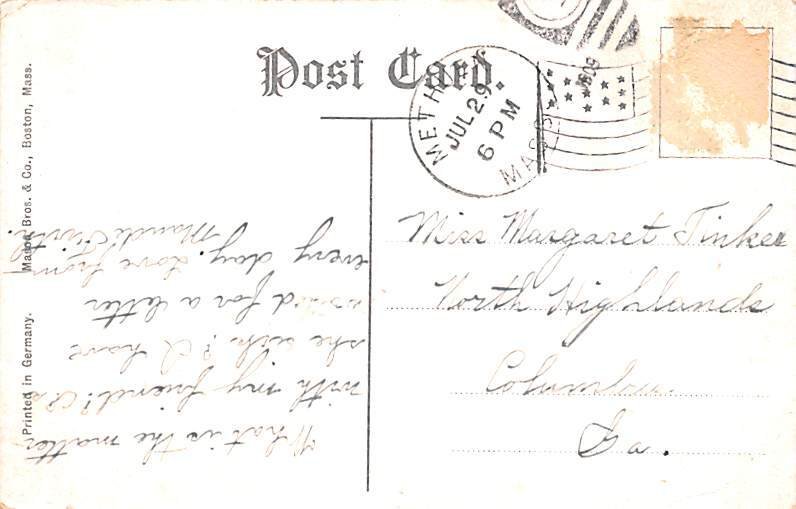 Post Card.
METHUEN
JUL 29
6 PM
MASS.
1909
Miss Margaret Tinker
North Highlands
Columbus
Ga.
What is the matter
with my friend? Is
she sick? I have
waited for a letter
every day. Love from
Maude
Printed in Germany.
Mason Bros. & Co., Boston, Mass.